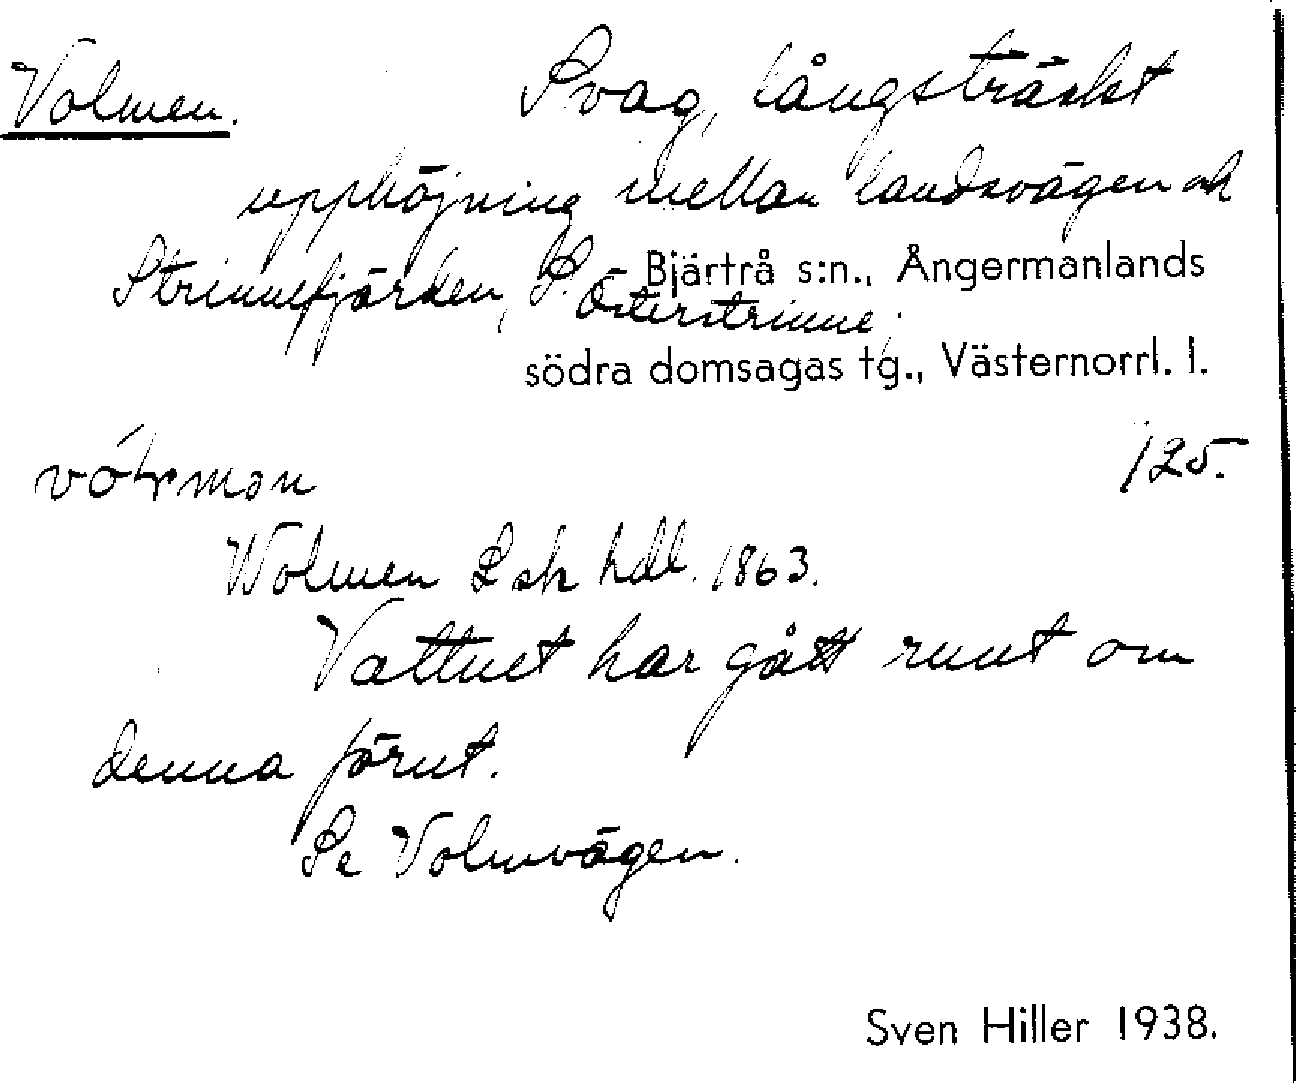 Volmen. Svag, långsträckt
upphöjning mellan landsvägen och
Strinnefjärden, S. Österstrinne.
Bjärtrå s:n., Ångermanlands
södra domsagas tg., Västernorrl. l.
125.
Wolmen L sk hdl. 1863.
Vattnet har gått runt om
denna förut.
Se Volmvägen.
Sven Hiller 1938.